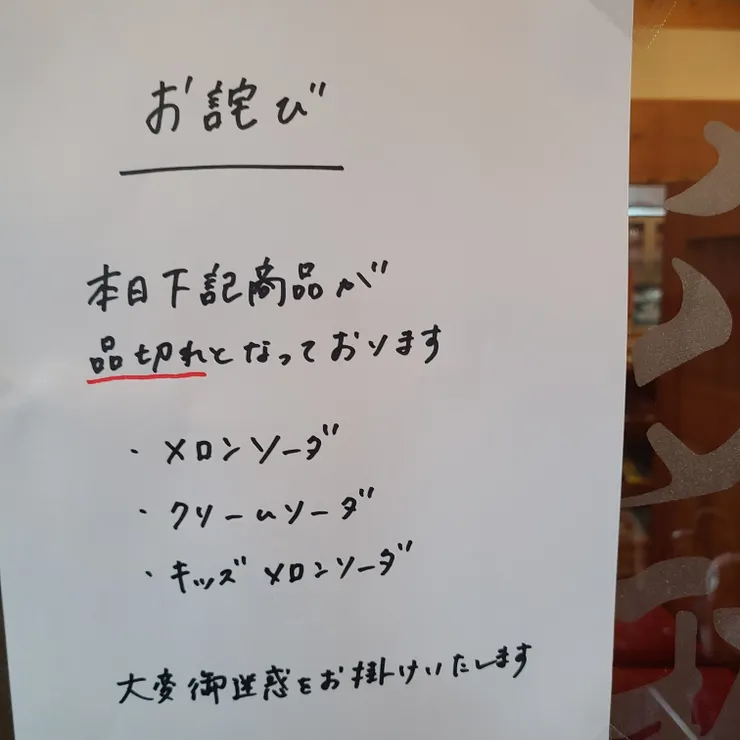 お詫び
本日下記商品が
品切れとなっております
・メロンソーダ
・クリームソーダ
・キッズメロンソーダ
大変御迷惑をお掛けいたします